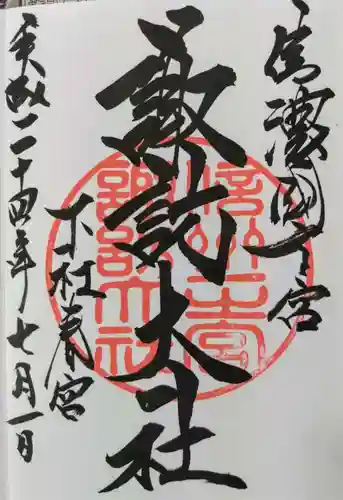 信濃國一宮
諏訪大社
下社春宮
平成二十四年七月一日
信州一之宮
諏訪大社